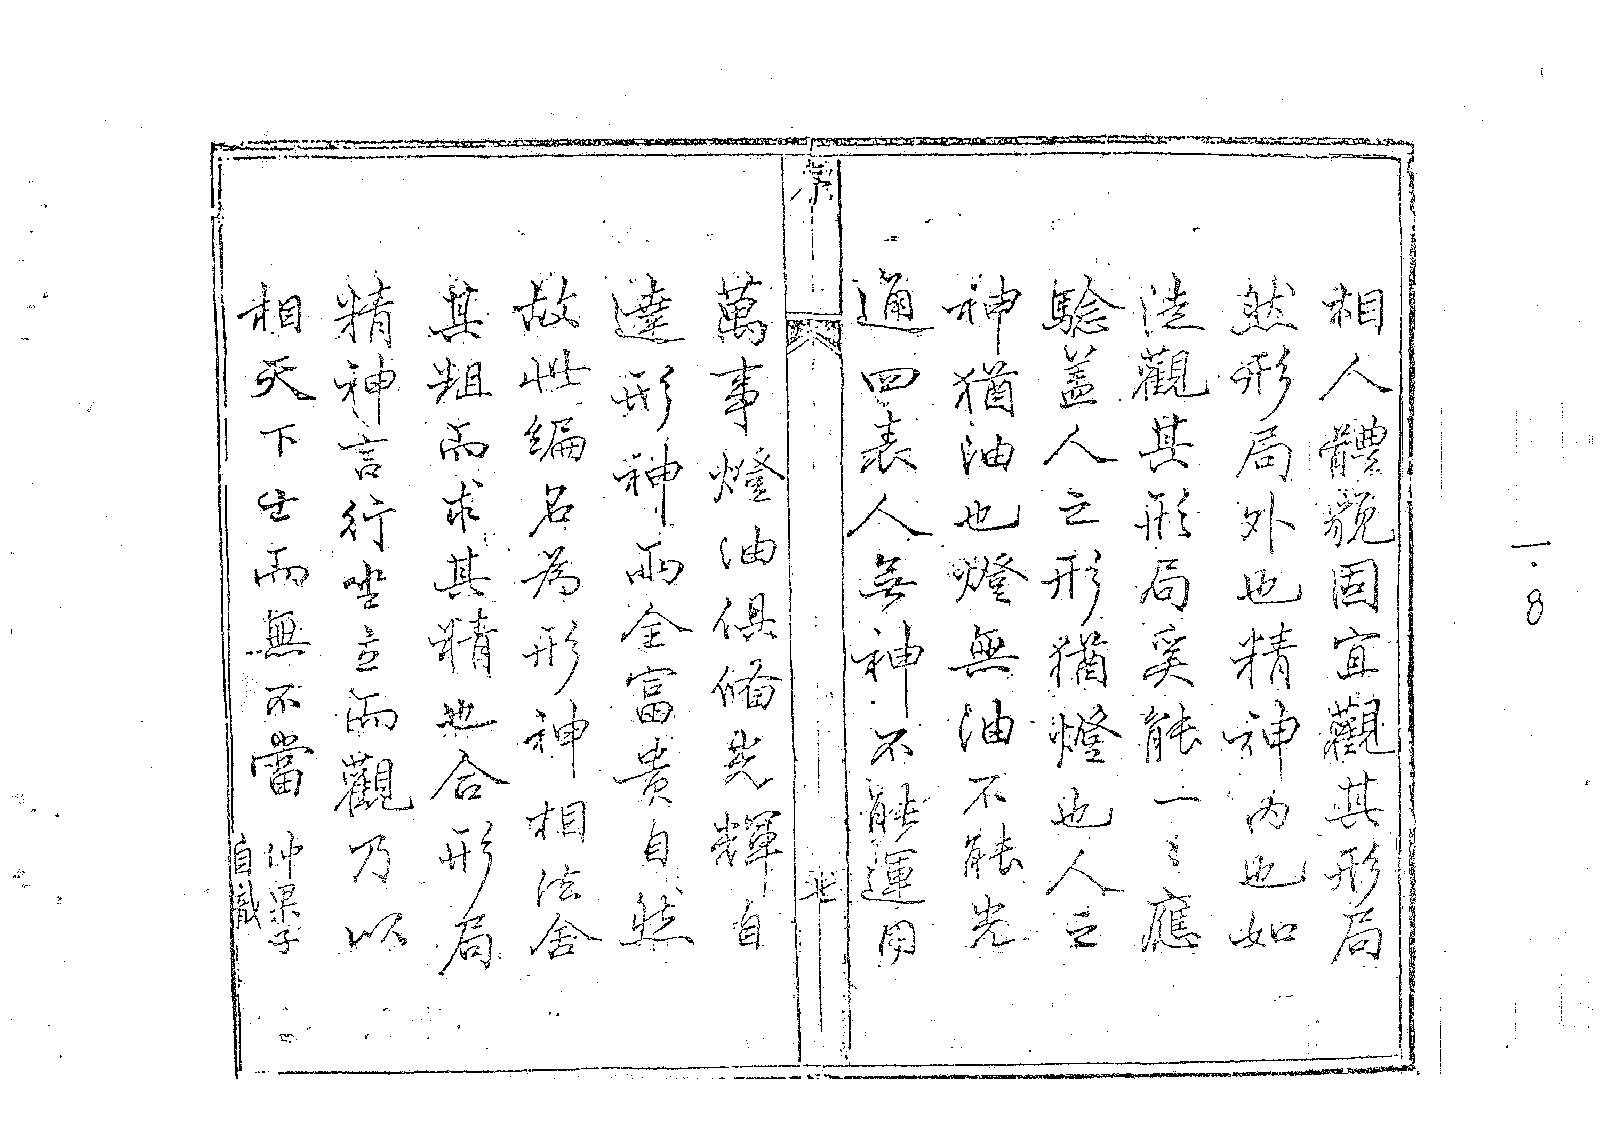 相人體貌固宜觀其形局
然形局外也精神內也如
法觀其形局奚能一〻應
驗盖人之形猶燈也人之
神猶油也燈無油不能光
通四表人無神不能運用
序
萬事燈油俱偹光輝自
達形神兩全富貴自然
故此编名為形神相法舍
其粗而求其精也合形局
精神言行坐立而觀乃以
相天下士而無不當
仲杲子
自識
一·8